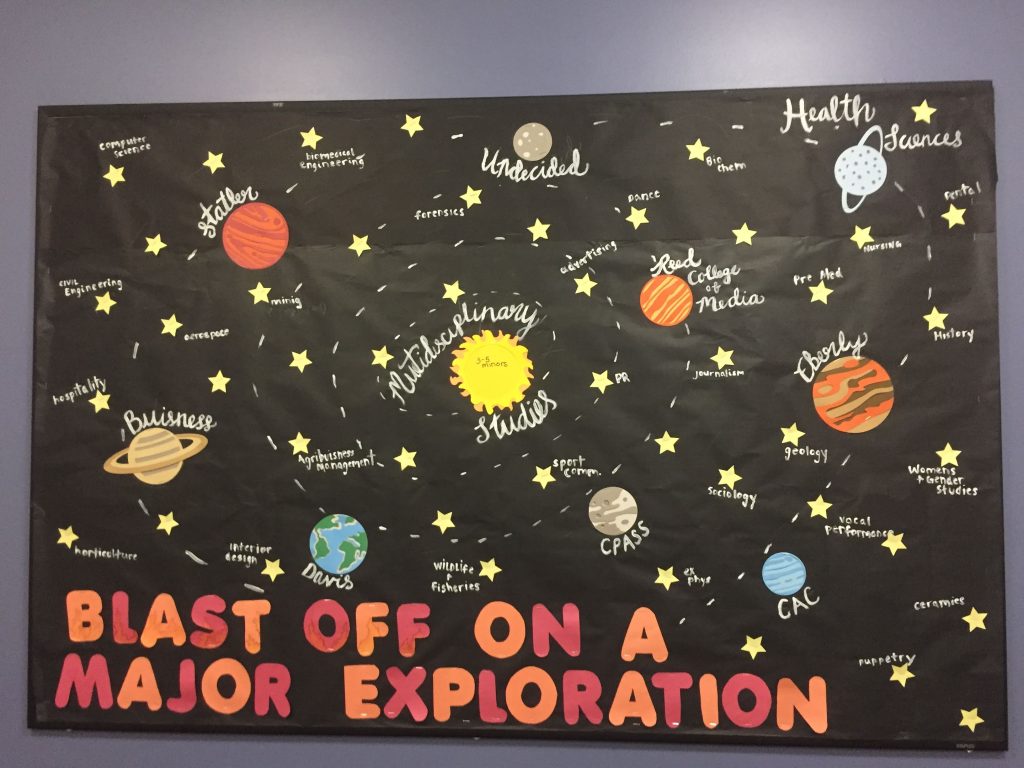 Health
Sciences
computer
science
biomedical
engineering
Undecided
Bio
chem
Statler
forensics
Dance
Dental
Nursing
advertising
Reed
College
of
Media
Pre Med
Civil
Engineering
minig
aerospace
History
Mutidisciplinary
Studies
3-5
minors
PR
journalism
Eberly
hospitality
Buisness
Agribuisness
management
sport
comm.
geology
sociology
Womens
+ Gender
Studies
vocal
performance
horticulture
interior
design
Davis
Wildlife
+
Fisheries
CPASS
ex
phys
CAC
ceramics
puppetry
BLAST OFF ON A
MAJOR EXPLORATION